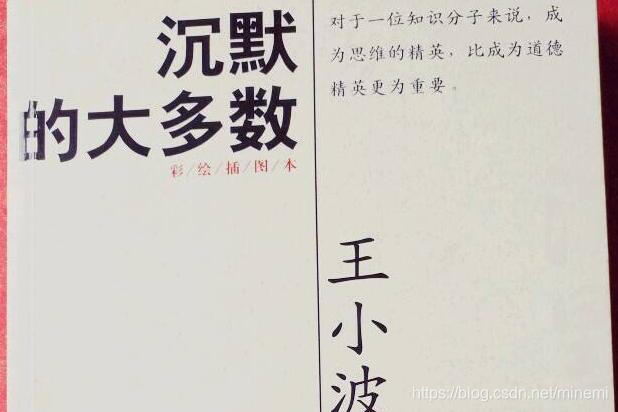 沉默
的大多数
彩/绘/插/图/本
对于一位知识分子来说，成
为思维的精英，比成为道德
精英更为重要。
王
小
波
https://blog.csdn.net/minemi